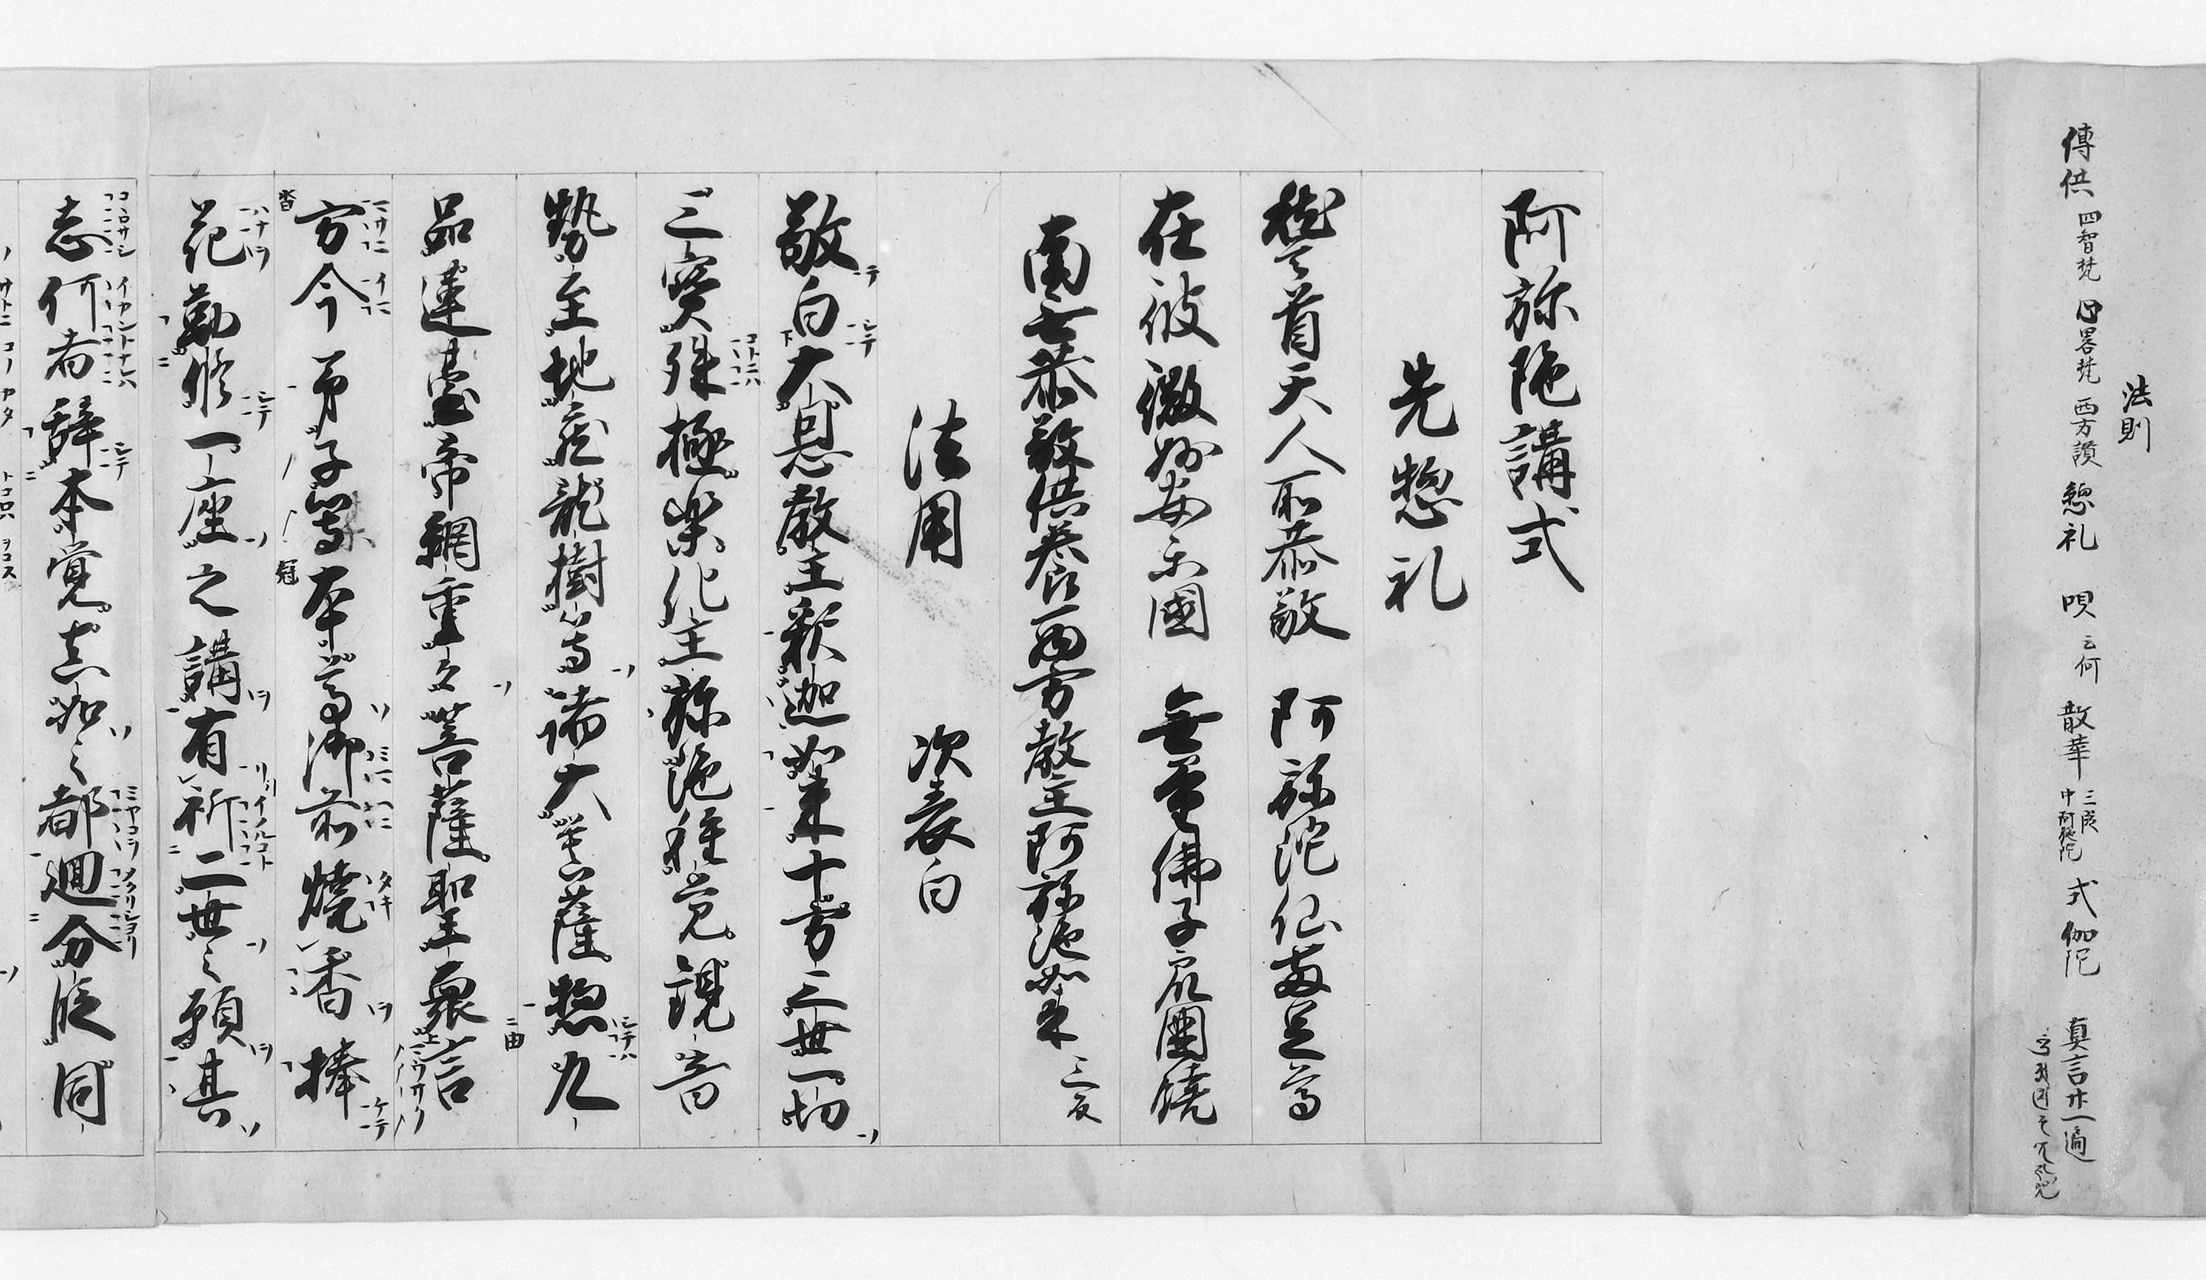 法則
傳供 四智梵 心畧梵 西方讃 惣礼 唄 云何 散華 三度 中阿弥陀 式 伽陀 真言廿一遍
阿弥陁講式
先惣礼
稽首天人所恭敬 阿弥陀仙両足尊
在彼微妙安楽國 無量佛子衆圍繞
南無恭敬供養西方教主阿弥陁如来 三反
法用 次表白
敬白大恩教主釈迦如来十方三世一切
三寶殊極楽化主弥陁種覚観音
勢至地蔵龍樹等諸大菩薩惣九
品蓮臺帝網重々菩薩聖衆言
方今弟子等本尊御前焼香捧
花勤修一座之講有祈二世之願其
志何者辞本覚真如之都廻分段同